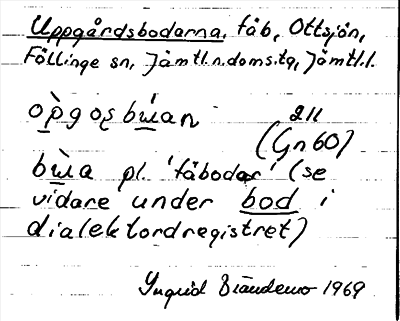 Uppgårdsbodarna, fäb, Ottsjön,
Föllinge sn, Jämtl.n.doms.tg, Jämtl.l.
òpgosbẁan 211
(Gn 60)
bẁa pl. 'fäbodar' (se
vidare under bod i
dialektordregistret)
Yngrid 1969